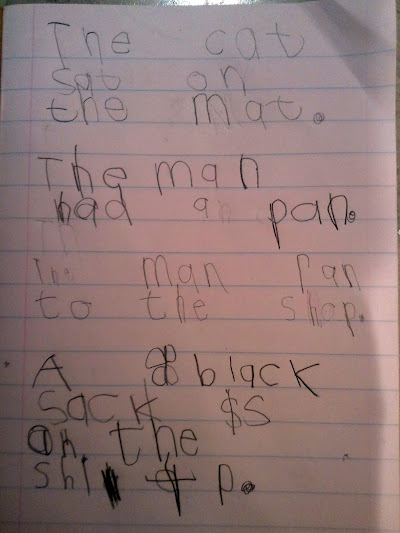 The cat
sat on
the mat.
The man
had a pan.
The man ran
to the shop.
A black
sack is
on the
ship.